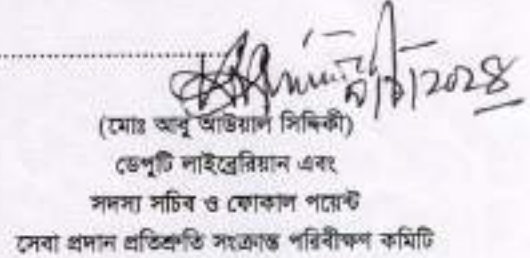 (মোঃ আবু আউয়াল সিদ্দিকী)
ডেপুটি লাইব্রেরিয়ান এবং
সদস্য সচিব ও ফোকাল পয়েন্ট
সেবা প্রদান প্রতিশ্রুতি সংক্রান্ত পরিবীক্ষণ কমিটি